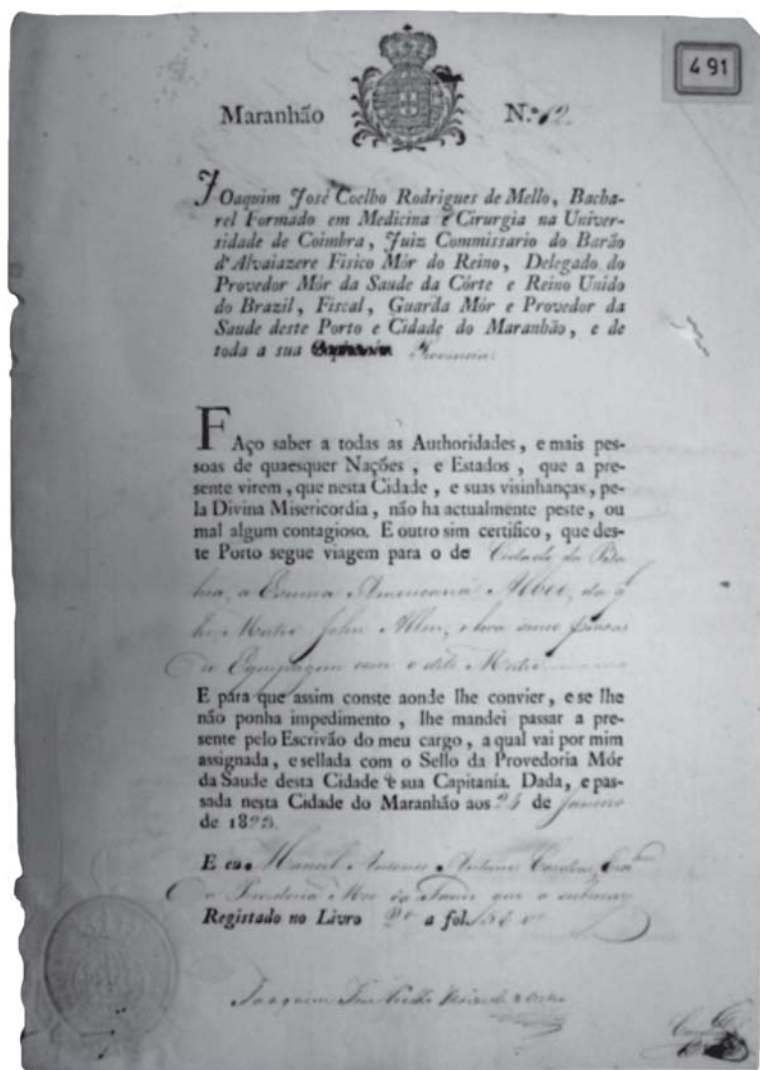 491
Maranhão N.º 62
Joaquim José Coelho Rodrigues de Mello, Bacha-
rel Formado em Medicina e Cirurgia na Univer-
sidade de Coimbra, Juiz Commissario do Barão
d'Alvaiazere Fisico Mór do Reino, Delegado do
Provedor Mór da Saude da Côrte e Reino Unido
do Brazil, Fiscal, Guarda Mór e Provedor da
Saude deste Porto e Cidade do Maranhão, e de
toda a sua Provincia
FAço saber a todas as Authoridades, e mais pes-
soas de quaesquer Nações, e Estados, que a pre-
sente virem, que nesta Cidade, e suas visinhanças, pe-
la Divina Misericordia, não ha actualmente peste, ou
mal algum contagioso. E outro sim certifico, que des-
te Porto segue viagem para o de Cidade da Ba
hia, a Escuna Americana da q
he Mestre John Allen, e leva pessoas
de Equipagem com o dito Mestre
E para que assim conste aonde lhe convier, e se lhe
não ponha impedimento, lhe mandei passar a pre-
sente pelo Escrivão do meu cargo, a qual vai por mim
assignada, e sellada com o Sello da Provedoria Mór
da Saude desta Cidade e sua Capitanía. Dada, e pas-
sada nesta Cidade do Maranhão aos 24 de Janeiro
de 182
E eu Manoel Antonio Cardoso
a Provedoria Mor da Saude que a
Registado no Livro a fol.
Joaquim José